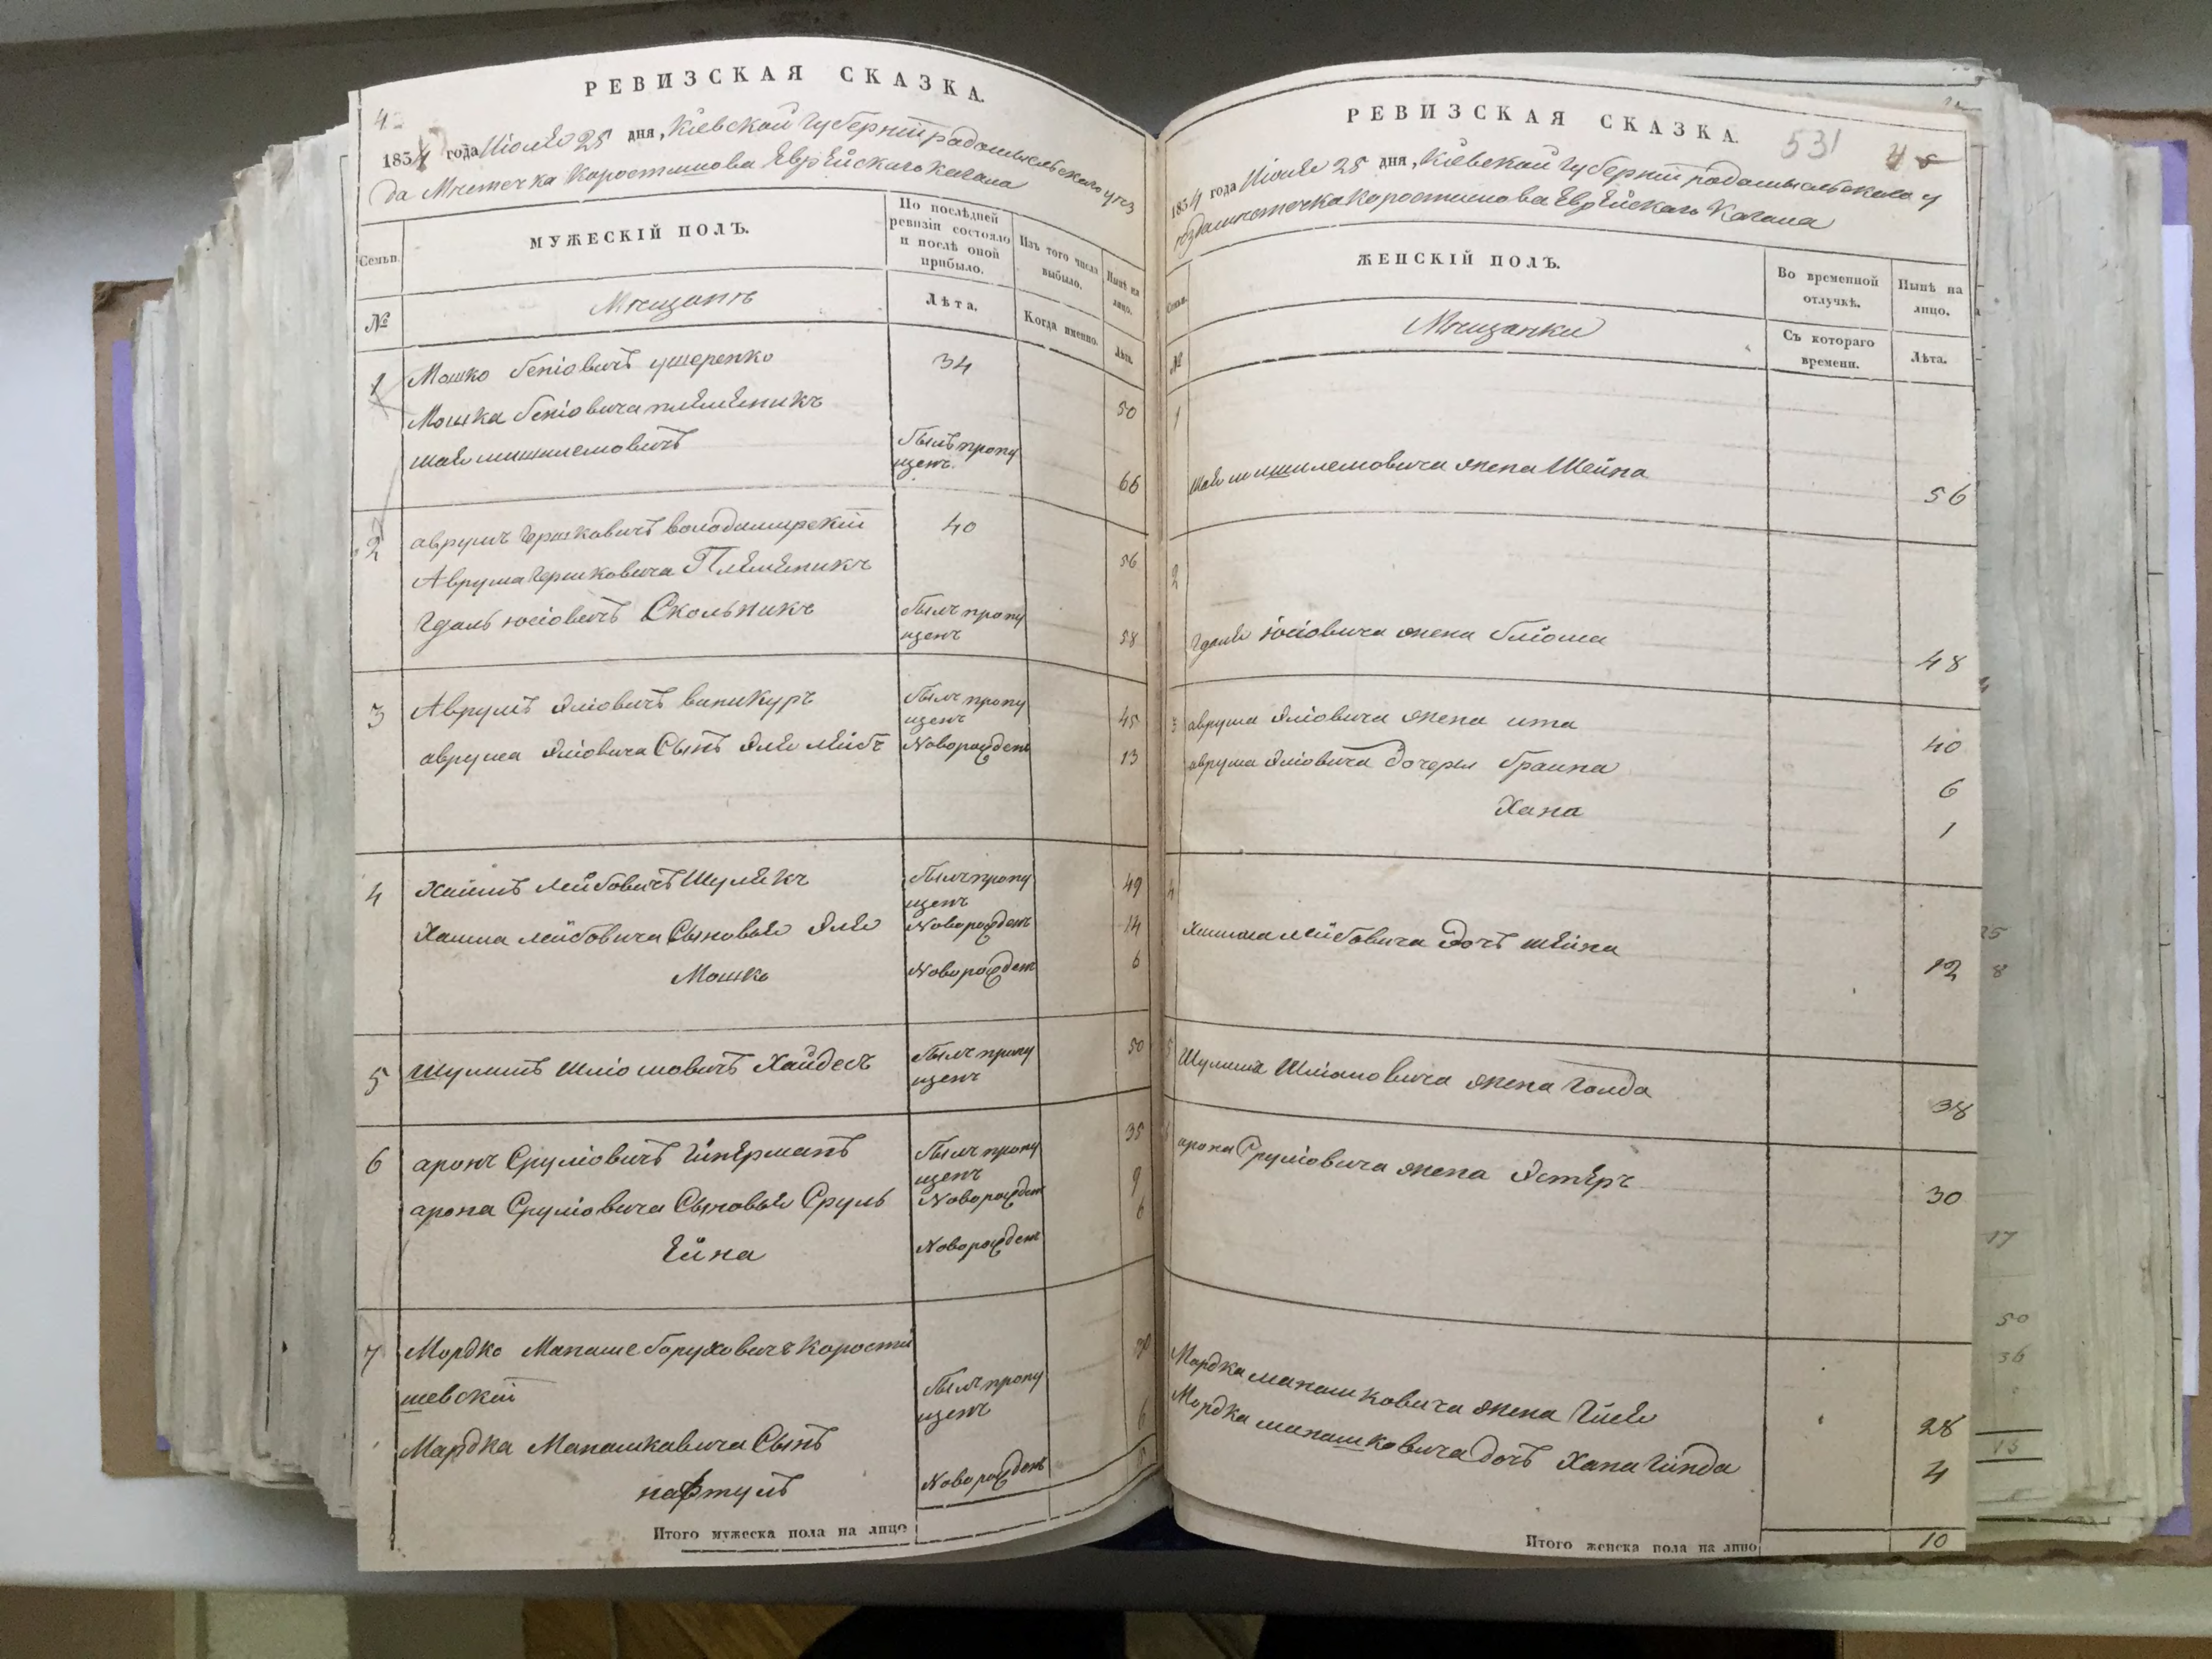 РЕВИЗСКАЯ СКАЗКА.
1854 года Июля 25 дня, Кіевской Губерніи радомысльскаго уез
да Мѣстечка Коростышова Еврейскаго Кагала
Семьи.
МУЖЕСКІЙ ПОЛЪ.
По послѣдней ревизіи состояло и послѣ оной прибыло.
Изъ того числа выбыло.
Нынѣ на лицо.
№
Мѣщанѣ
Лѣта.
Когда именно.
Лѣта.
1 Мошко беніовичъ ушеренко 34
50
Мошка беніовича племеникъ
шая былъ пропу
щенъ. 66
2 аврумъ Гершковичъ володимирскій 40
56
Аврума Гершковича Племеникъ
Гдаль юсіовичъ Скольникъ былъ пропу
щенъ 58
3 Аврумъ Эліовичъ виникуръ былъ пропу
щенъ 45
аврума Эліовича Сынъ Эля лейбъ Новорожденъ 13
4 Хаимъ Лейбовичъ Шулякъ былъ пропу
щенъ 49
Хаима лейбовича Сыновья Эля Новорожденъ 14
Мошко Новорожденъ 6
5 Шулимъ Шліомовичъ Хайдесъ былъ пропу
щенъ 50
6 аронъ Сруліовичъ былъ пропу
щенъ 35
арона Сруліовича Сыновья Сруль Новорожденъ 9
Ейна Новорожденъ 6
7 Мордко Манаше боруховичъ Корости
шевскій былъ пропу
щенъ
Мордка Манашковича Сынъ
нафтулъ Новорожденъ 6
Итого мужеска пола на лицо
РЕВИЗСКАЯ СКАЗКА.
531
1854 года Июля 25 дня, Кіевской Губерніи радомысльскаго у
ѣзда мѣстечка Коростышова Еврейскаго Кагала
Семьи.
ЖЕНСКІЙ ПОЛЪ.
Во временной отлучкѣ.
Нынѣ на лицо.
№
Мѣщанки
Съ котораго времени.
Лѣта.
1
жена Шейна 56
2
Гдаля юсіовича жена бліома 48
3 аврума Эліовича жена ита 40
аврума Эліовича дочери браина 6
Хана 1
4
Хаима лейбовича дочь шейна 12
5 Шулима Шліомовича жена Голда 38
6 арона Сруліовича жена Эстеръ 30
Мордка манашковича жена Гися 28
Мордка манашковича дочь Хана Гинда 4
Итого женска пола на лицо 10